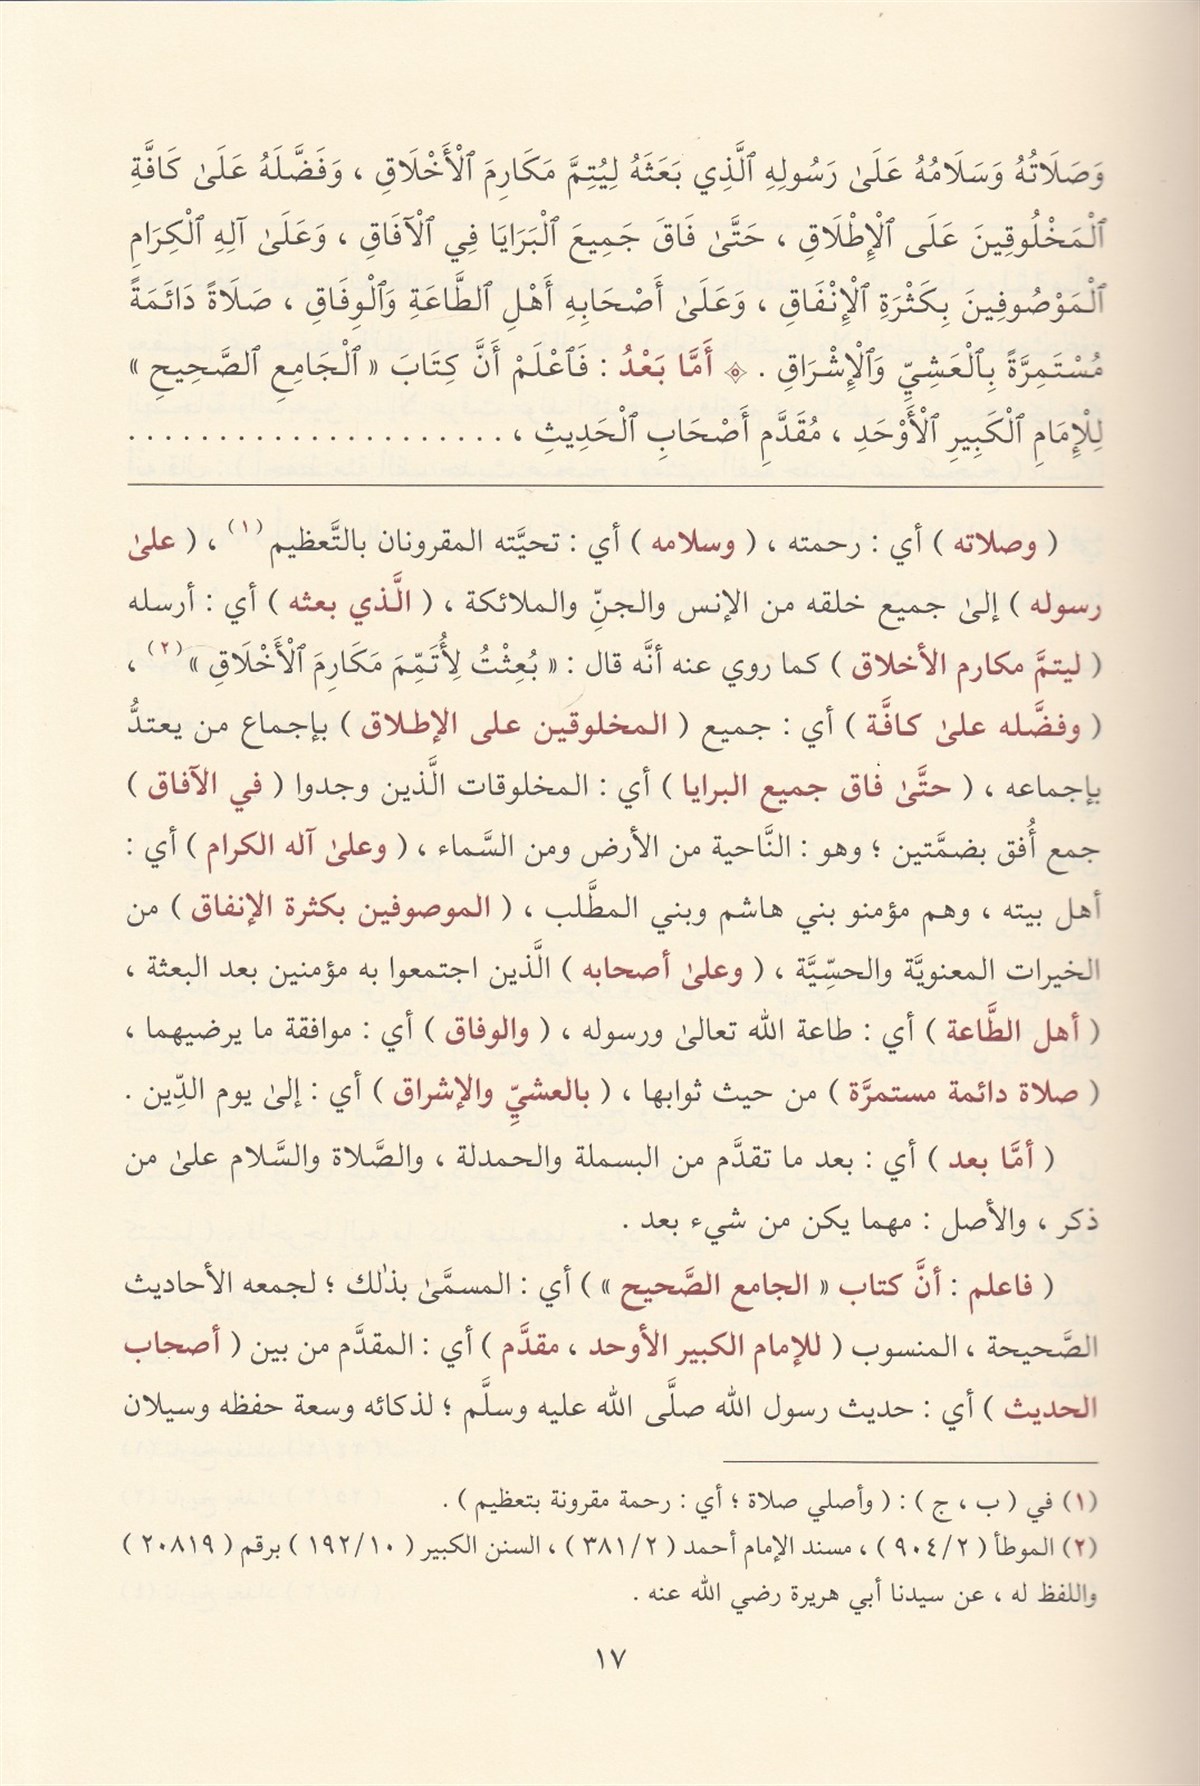 وَصَلَاتُهُ وَسَلَامُهُ عَلَىٰ رَسُولِهِ ٱلَّذِي بَعَثَهُ لِيُتِمَّ مَكَارِمَ ٱلْأَخْلَاقِ ، وَفَضَّلَهُ عَلَىٰ كَافَّةِ
ٱلْمَخْلُوقِينَ عَلَى ٱلْإِطْلَاقِ ، حَتَّىٰ فَاقَ جَمِيعَ ٱلْبَرَايَا فِي ٱلْآفَاقِ ، وَعَلَىٰ آلِهِ ٱلْكِرَامِ
ٱلْمَوْصُوفِينَ بِكَثْرَةِ ٱلْإِنْفَاقِ ، وَعَلَىٰ أَصْحَابِهِ أَهْلِ ٱلطَّاعَةِ وَٱلْوِفَاقِ ، صَلَاةً دَائِمَةً
مُسْتَمِرَّةً بِٱلْعَشِيِّ وَٱلْإِشْرَاقِ . أَمَّا بَعْدُ : فَٱعْلَمْ أَنَّ كِتَابَ « ٱلْجَامِعِ ٱلصَّحِيحِ »
لِلْإِمَامِ ٱلْكَبِيرِ ٱلْأَوْحَدِ ، مُقَدَّمِ أَصْحَابِ ٱلْحَدِيثِ ، . . . . . . . . . . . . . . . . . . . .
( وصلاته ) أي : رحمته ، ( وسلامه ) أي : تحيَّته المقرونان بالتَّعظيم(١) ، ( علىٰ
رسوله ) إلىٰ جميع خلقه من الإنس والجنِّ والملائكة ، ( الَّذي بعثه ) أي : أرسله
( ليتمَّ مكارم الأخلاق ) كما روي عنه أنَّه قال : « بُعِثْتُ لِأُتَمِّمَ مَكَارِمَ ٱلْأَخْلَاقِ »(٢) ،
( وفضَّله علىٰ كافَّة ) أي : جميع ( المخلوقين على الإطلاق ) بإجماع من يعتدُّ
بإجماعه ، ( حتَّىٰ فاق جميع البرايا ) أي : المخلوقات الَّذين وجدوا ( في الآفاق )
جمع أُفق بضمَّتين ؛ وهو : النَّاحية من الأرض ومن السَّماء ، ( وعلىٰ آله الكرام ) أي :
أهل بيته ، وهم مؤمنو بني هاشم وبني المطَّلب ، ( الموصوفين بكثرة الإنفاق ) من
الخيرات المعنويَّة والحسِّيَّة ، ( وعلىٰ أصحابه ) الَّذين اجتمعوا به مؤمنين بعد البعثة ،
( أهل الطَّاعة ) أي : طاعة الله تعالىٰ ورسوله ، ( والوفاق ) أي : موافقة ما يرضيهما ،
( صلاة دائمة مستمرَّة ) من حيث ثوابها ، ( بالعشيِّ والإشراق ) أي : إلىٰ يوم الدِّين .
( أمَّا بعد ) أي : بعد ما تقدَّم من البسملة والحمدلة ، والصَّلاة والسَّلام علىٰ من
ذكر ، والأصل : مهما يكن من شيء بعد .
( فاعلم : أنَّ كتاب « الجامع الصَّحيح » ) أي : المسمَّىٰ بذٰلك ؛ لجمعه الأحاديث
الصَّحيحة ، المنسوب ( للإمام الكبير الأوحد ، مقدَّم ) أي : المقدَّم من بين ( أصحاب
الحديث ) أي : حديث رسول الله صلَّى الله عليه وسلَّم ؛ لذكائه وسعة حفظه وسيلان
(١) في ( ب ، ج ) : ( وأصلي صلاة ؛ أي : رحمة مقرونة بتعظيم ) .
(٢) الموطأ ( ٩٠٤/٢ ) ، مسند الإمام أحمد ( ٣٨١/٢ ) ، السنن الكبير ( ١٩٢/١٠ ) برقم ( ٢٠٨١٩ )
واللفظ له ، عن سيدنا أبي هريرة رضي الله عنه .
١٧